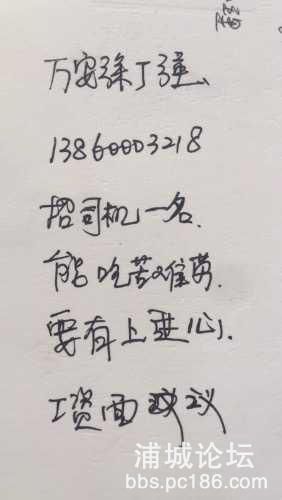 万安徐丁强
13860003218
招司机一名.
能吃苦难劳.
要有上进心.
工资面议
浦城论坛
bbs.pc186.com